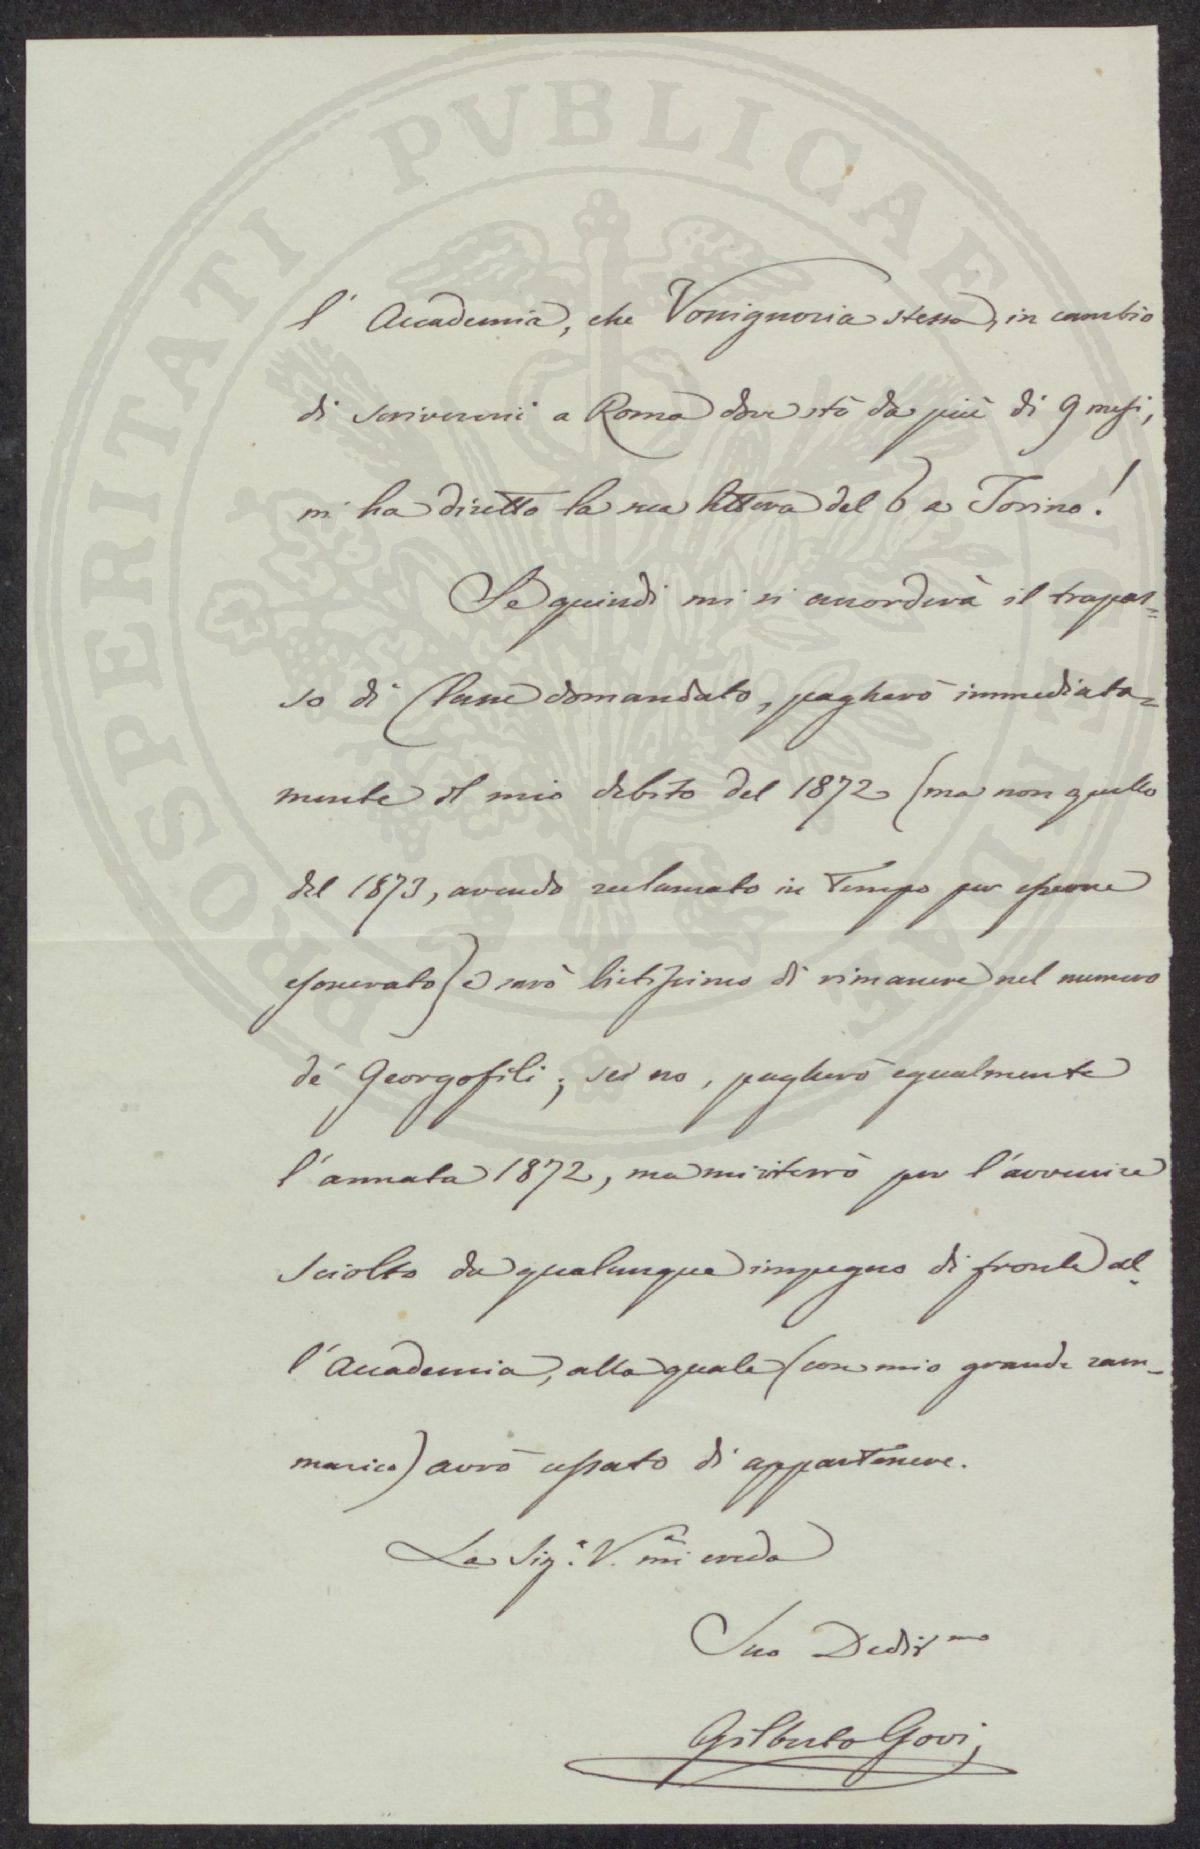 PROSPERITATI PVBLICAE AVGENDAE
l'Accademia, che Vossignoria stessa, in cambio
di scrivermi a Roma dove stò da più di 9 mesi,
mi ha diretto la sua lettera del 6 a Torino!
Se quindi mi si accorderà il trapas=
so di Classe domandato, pagherò immediata=
mente il mio debito del 1872 (ma non quello
del 1873, avendo reclamato in Tempo per esserne
esonerato) e sarò lietissimo di rimanere nel numero
de' Georgofili; se no, pagherò egualmente
l'annata 1872, ma mi riterrò per l'avvenire
sciolto da qualunque impegno di fronte al=
l'Accademia, alla quale (con mio grande ram=
marico) avrò cessato di appartenere.
La Sig.ª V.ª mi creda
Suo Dedis.mo
Gilberto Govi,